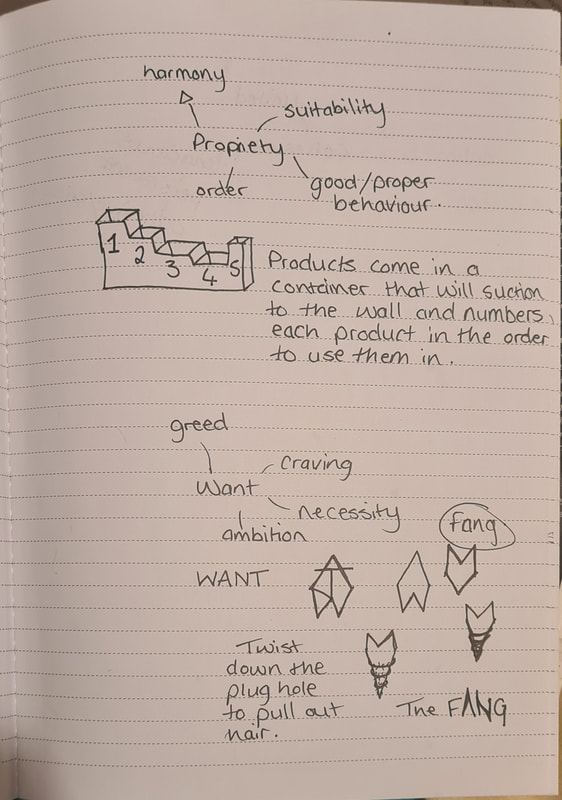 harmony
suitability
Propriety
order
good/proper
behaviour.
1 2 3 4 5
Products come in a
container that will suction
to the wall and numbers
each product in the order
to use them in.
greed
craving
Want
necessity
ambition
fang
WANT
Twist
down the
plug hole
to pull out
hair.
The FANG